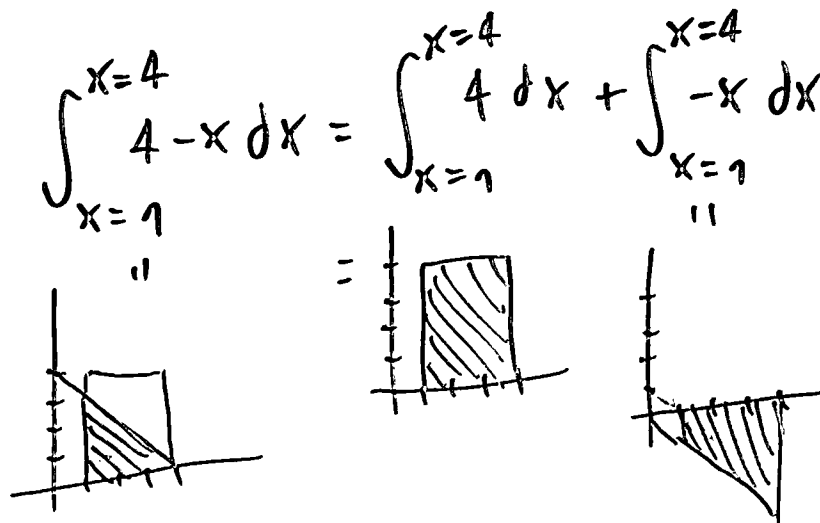 ∫_{x=1}^{x=4} 4-x dx = ∫_{x=1}^{x=4} 4 dx + ∫_{x=1}^{x=4} -x dx
" = "